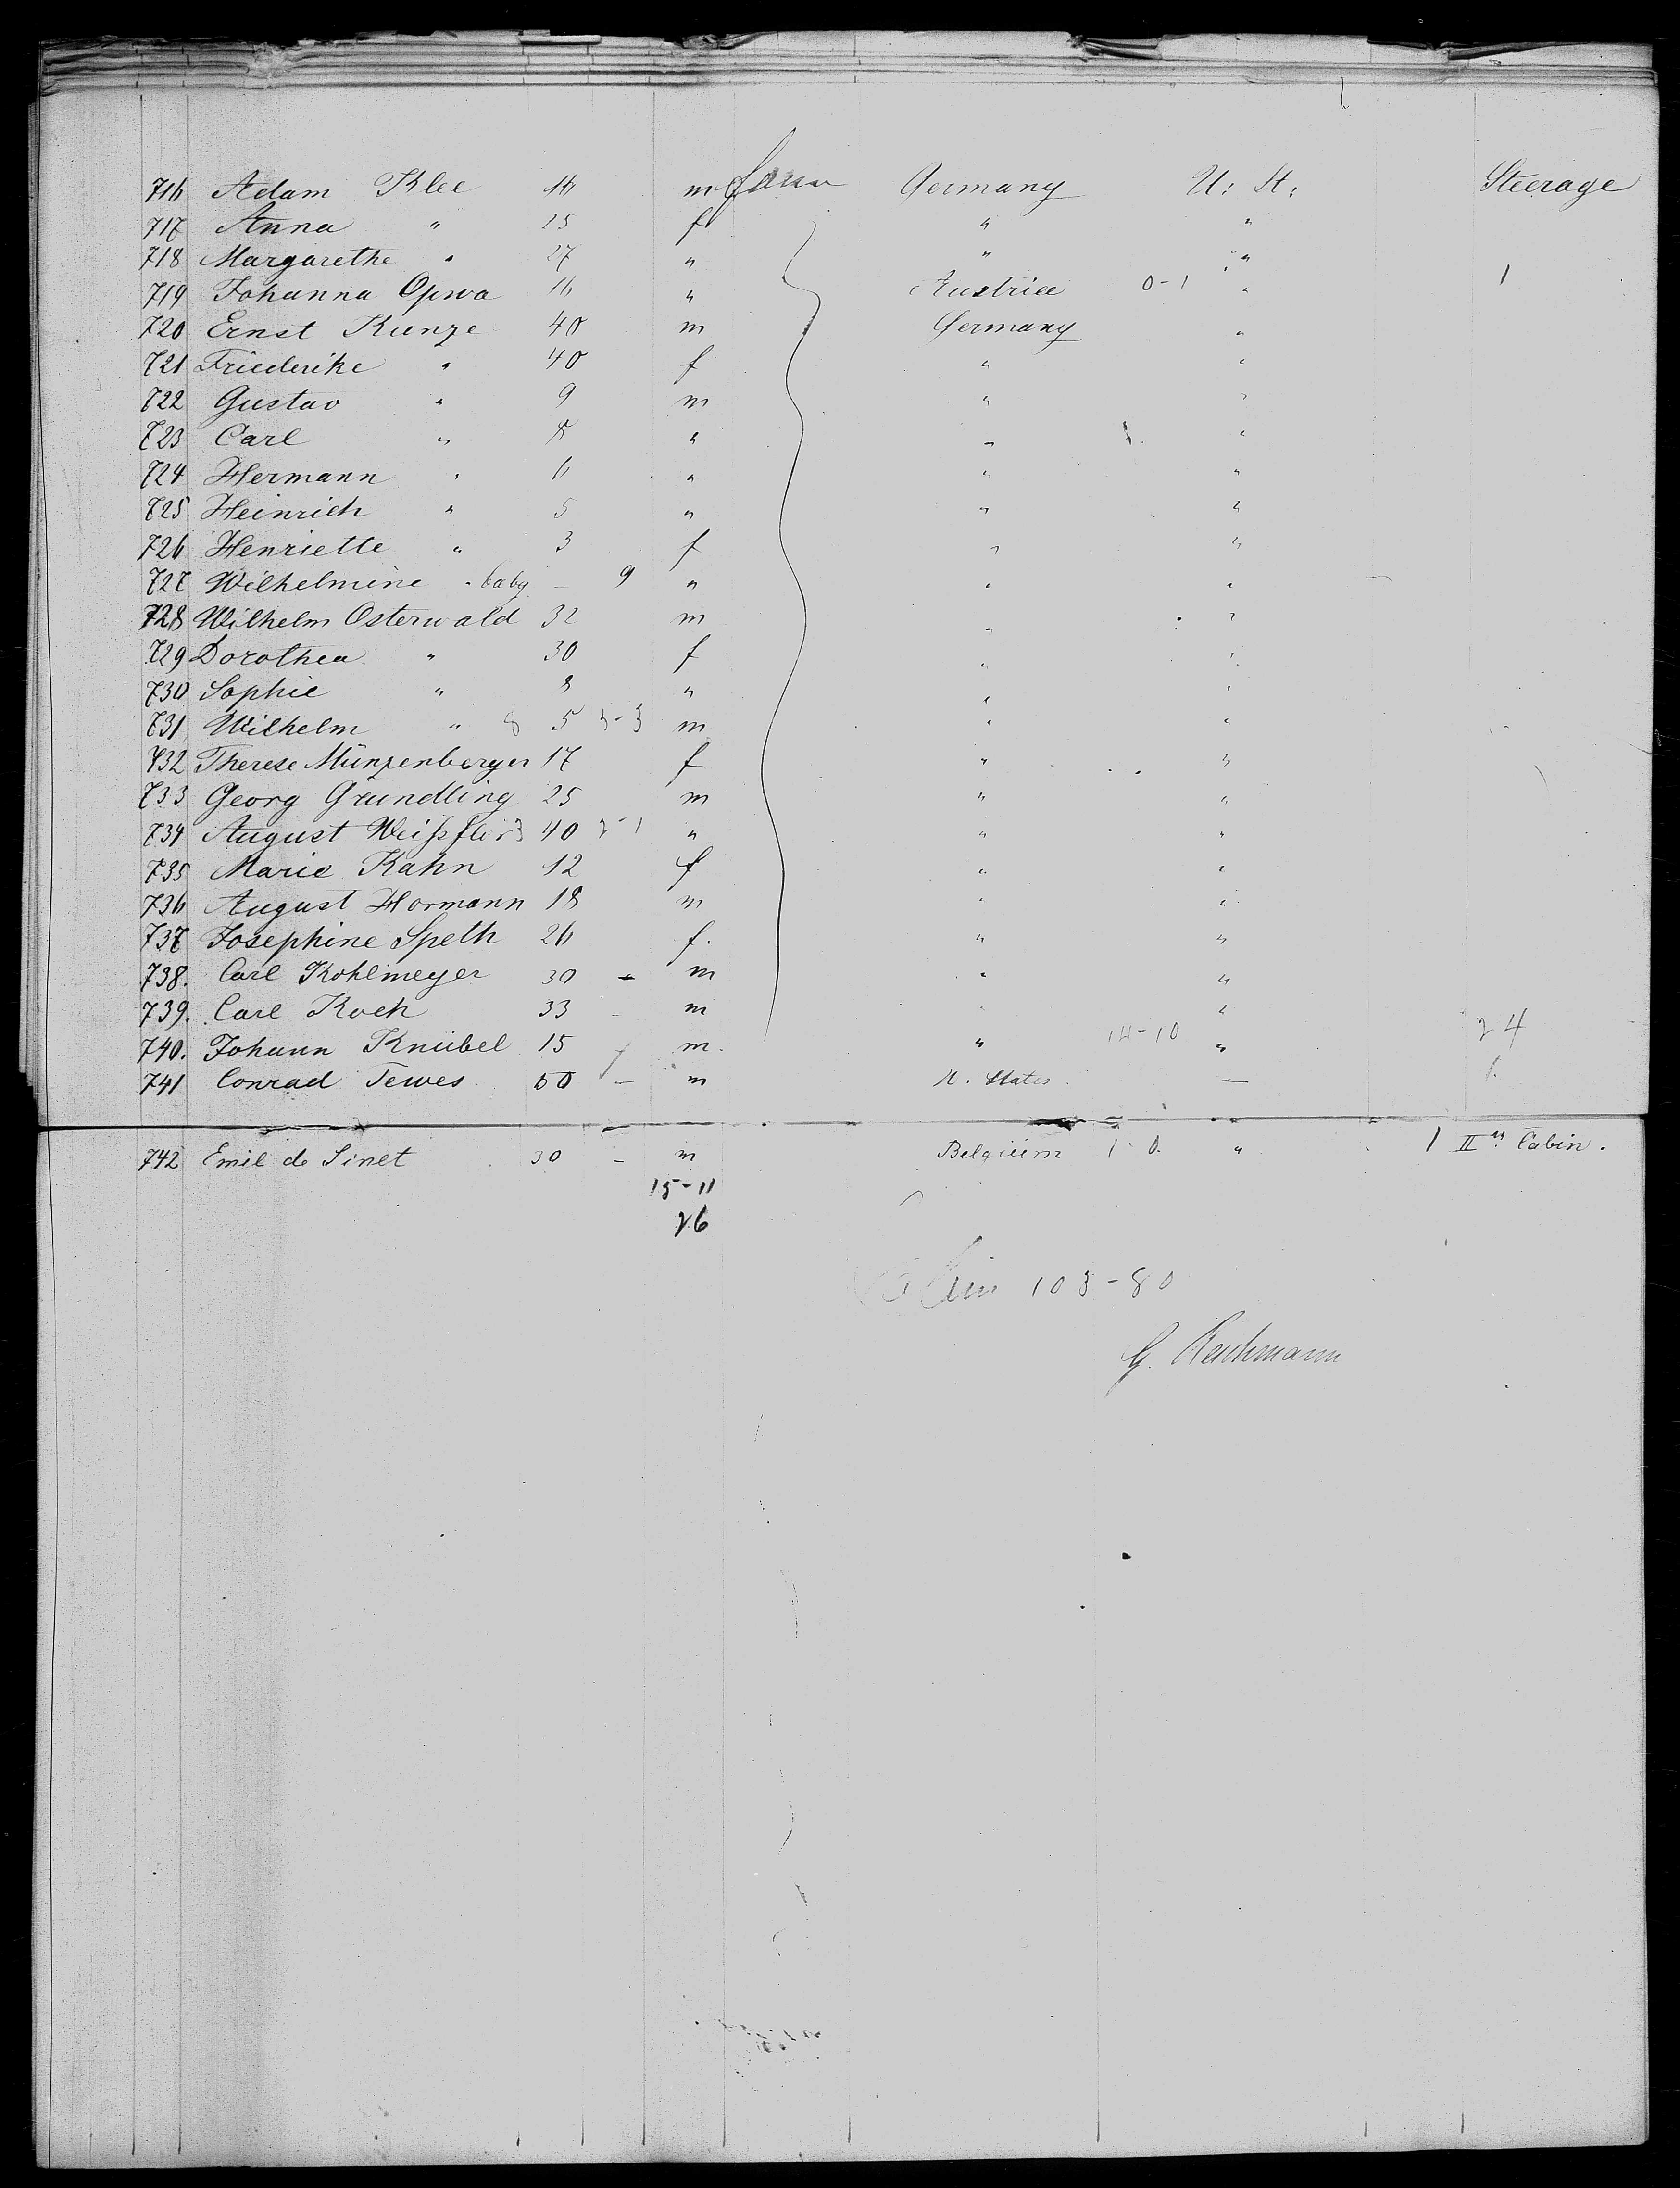 716 Adam Klee 16 m Germany U: St: Steerage
717 Anna " 25 f " "
718 Margarethe " 27 " " "
719 Johanna Opwa 16 " Austria 0-1 " 1
720 Ernst Kunze 40 m Germany "
721 Friederike " 40 f " "
722 Gustav " 9 m " "
723 Carl " 8 " " "
724 Hermann " 6 " " "
725 Heinrich " 5 " " "
726 Henriette " 3 f " "
727 Wilhelmine " baby - 9 " " "
728 Wilhelm Osterwald 32 m " "
729 Dorothea " 30 f " "
730 Sophie " 8 " " "
731 Wilhelm " 8 5 5-3 m " "
732 Therese Münzenberger 17 f " "
733 Georg Gründling 25 m " "
734 August 40 " " "
735 Marie Kahn 12 f " "
736 August Hormann 18 m " "
737 Josephine Speth 26 f. " "
738. Carl Kohlmeyer 30 - m " "
739. Carl Koch 33 - m " "
740. Johann Knübel 15 m. " 14-10 " 24
741 Conrad Tewes 50 - m U. States - 1.
742 Emil de Sinet 30 - m Belgium 1-0. " 1 II Cabin.
15-11
26
103-80
G.